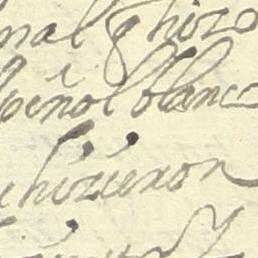 nal q hizo
peñol blanco
hizieron